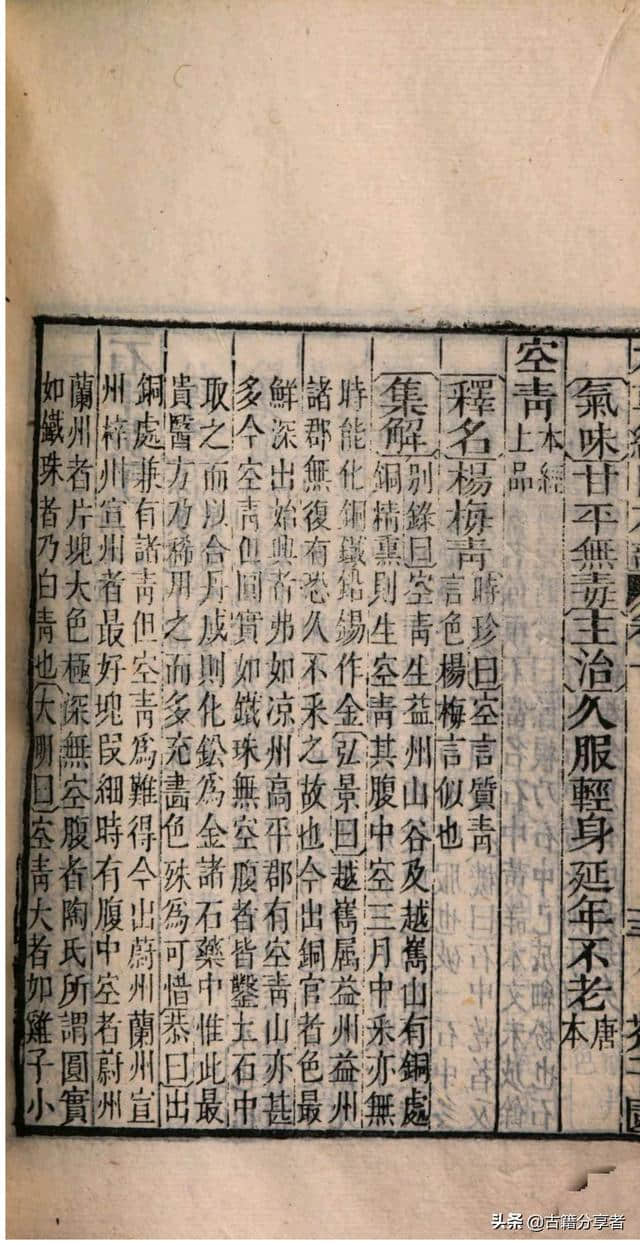 氣味甘平無毒主治久服輕身延年不老唐本
空青本經上品
釋名楊梅青時珍曰空言質青
言色楊梅言似也
集解別錄曰空青生益州山谷及越巂山有銅處
銅精熏則生空青其腹中空三月中采亦無
時能化銅鐵鉛錫作金弘景曰越巂属益州益州
諸郡無復有恐久不采之故也今出銅官者色最
鮮深出始興者弗如凉州高平郡有空青山亦甚
多今空青但圓實如鐵珠無空腹者皆鑿土石中
取之而以合丹成則化鈆為金諸石藥中惟此最
貴醫方乃稀用之而多充畵色殊為可惜恭曰出
銅處兼有諸青但空青為難得今出蔚州蘭州宣
州梓州宣州者最好塊段細時有腹中空者蔚州
蘭州者片塊大色極深無空腹者陶氏所謂圓實
如鐵珠者乃白青也大明曰空青大者如雞子小
头条@古籍分享者